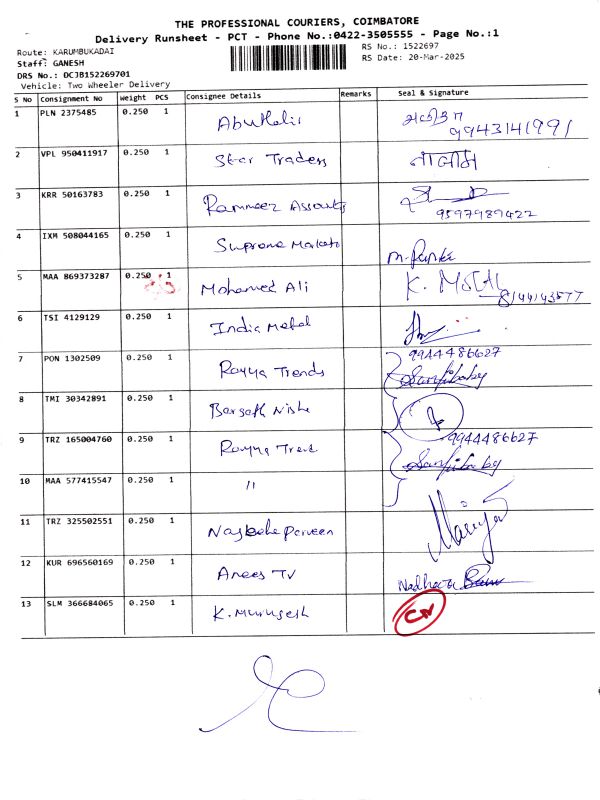 THE PROFESSIONAL COURIERS, COIMBATORE
Delivery Runsheet - PCT - Phone No.:0422-3505555 - Page No.:1
Route: KARUMBUKADAI
RS No.: 1522697
Staff: GANESH
RS Date: 20-Mar-2025
DRS No.: OCJB152269701
Vehicle: Two Wheeler Delivery
S No Consignment No Weight PCS Consignee Details Remarks Seal & Signature
1 PLN 2375485 0.250 1
9943141991
2 VPL 950411917 0.250 1 Star Traders
3 KRR 50163783 0.250 1 Rameez
9597989422
4 IXM 508044165 0.250 1
5 MAA 869373287 0.250 1 Mohamed Ali K.
8144143577
6 TSI 4129129 0.250 1 India Metal
9944486627
7 PON 1302509 0.250 1 Rayya Trends
8 TMI 30342891 0.250 1
9 TRZ 165004760 0.250 1 Rayya 9944486627
10 MAA 577415547 0.250 1 "
11 TRZ 325502551 0.250 1
12 KUR 696560169 0.250 1 Anees TV
13 SLM 366684065 0.250 1 K. Murugesh CN